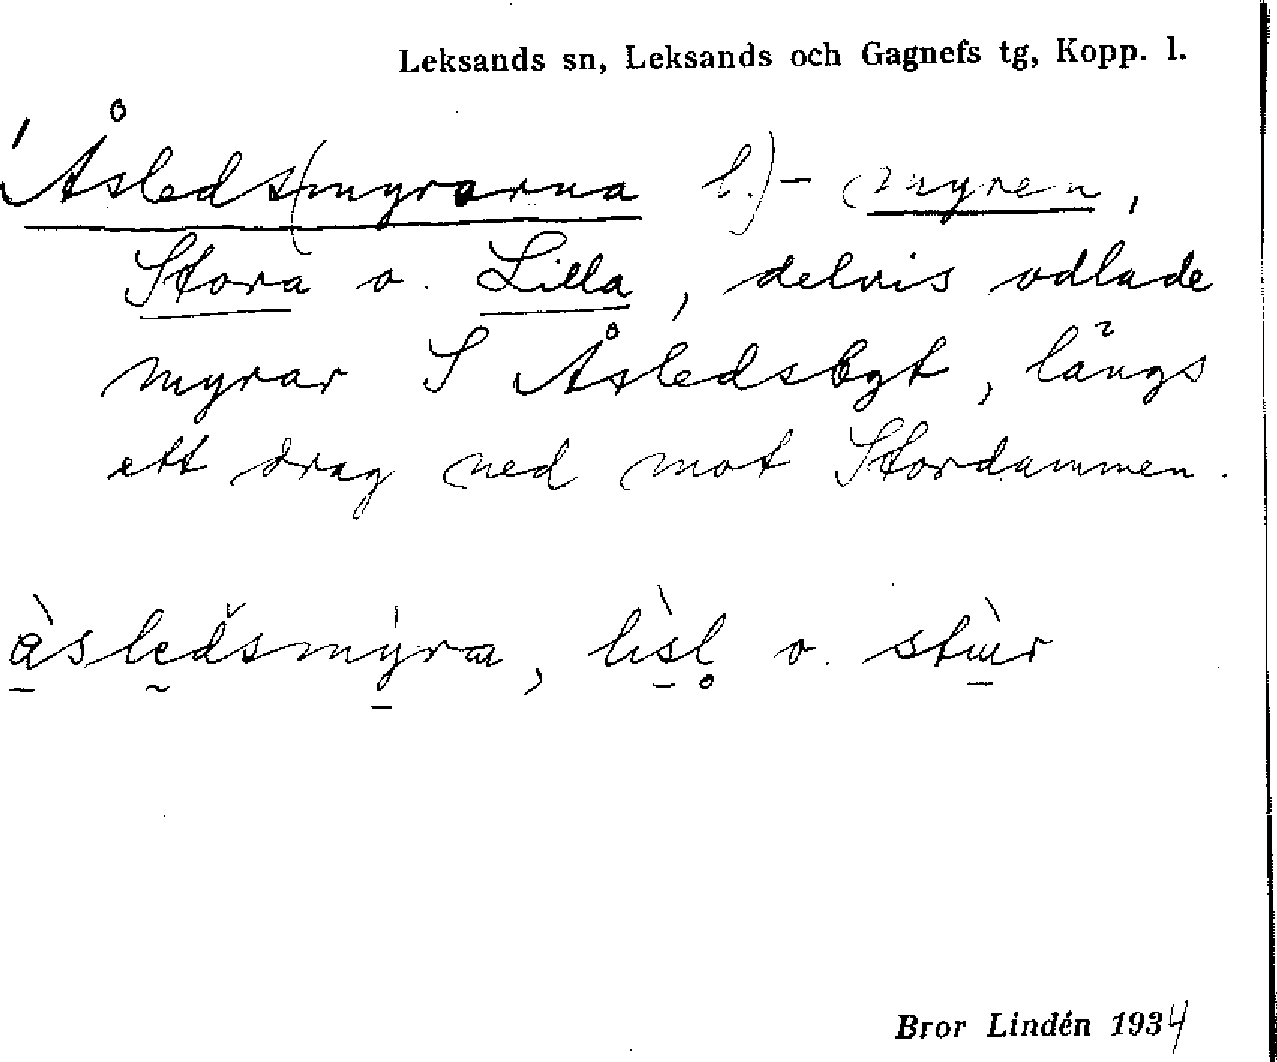 Leksands sn, Leksands och Gagnefs tg, Kopp. l.
Åsleds(myrarna l.)- myren,
Stora o. Lilla, delvis odlade
myrar S Åsledsbyt, längs
ett drag ned mot Stordammen.
o.
Bror Lindén 1934